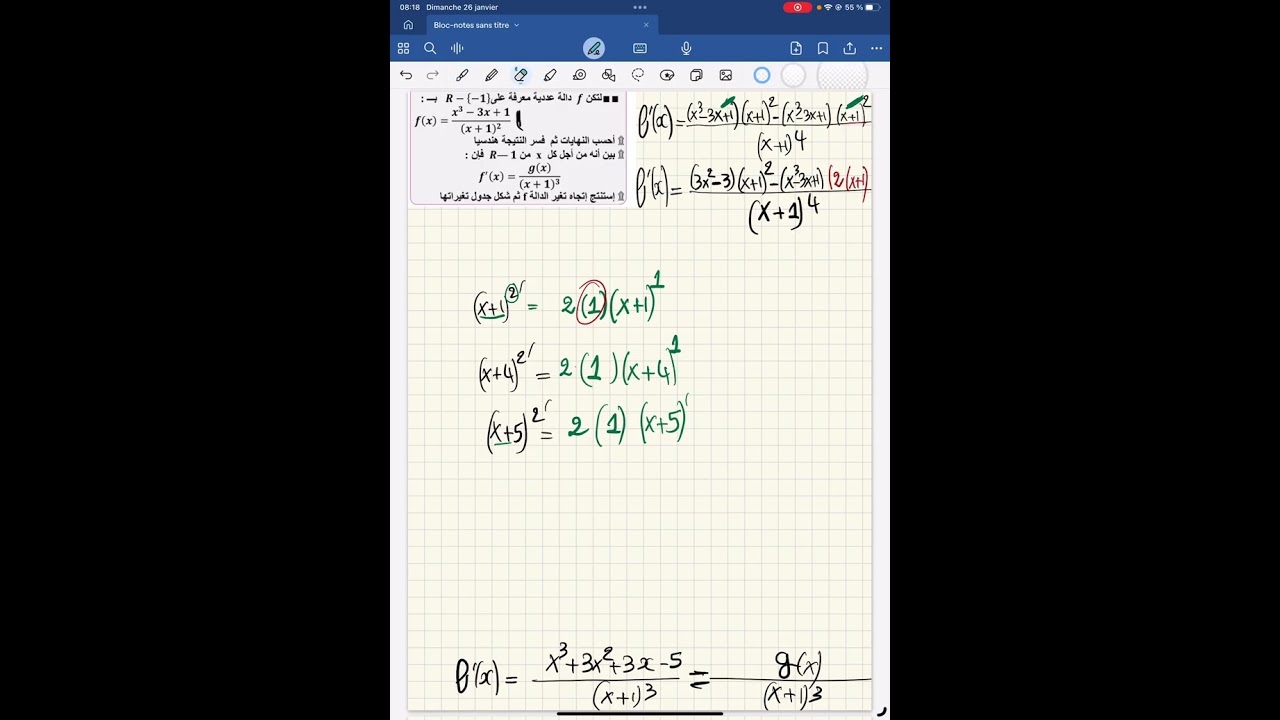 08:18 Dimanche 26 janvier
55 %
Bloc-notes sans titre
■■لتكن f دالة عددية معرفة على R − {−1} بـــ :
f(x) = (x³ − 3x + 1)/(x + 1)²
أحسب النهايات ثم فسر النتيجة هندسيا
بين أنه من أجل كل x من R— 1 فإن :
f′(x) = g(x)/(x + 1)³
إستنتج إتجاه تغير الدالة f ثم شكل جدول تغيراتها
f'(x) = ((x³-3x+1)'(x+1)²-(x³-3x+1)(x+1)²')/(x+1)⁴
f'(x) = ((3x²-3)(x+1)²-(x³-3x+1)(2(x+1)/(x+1)⁴
(x+1)²' = 2(1)(x+1)¹
(x+4)²' = 2(1)(x+4)¹
(x+5)²' = 2(1)(x+5)'
f'(x) = (x³+3x²+3x-5)/(x+1)³ = g(x)/(x+1)³